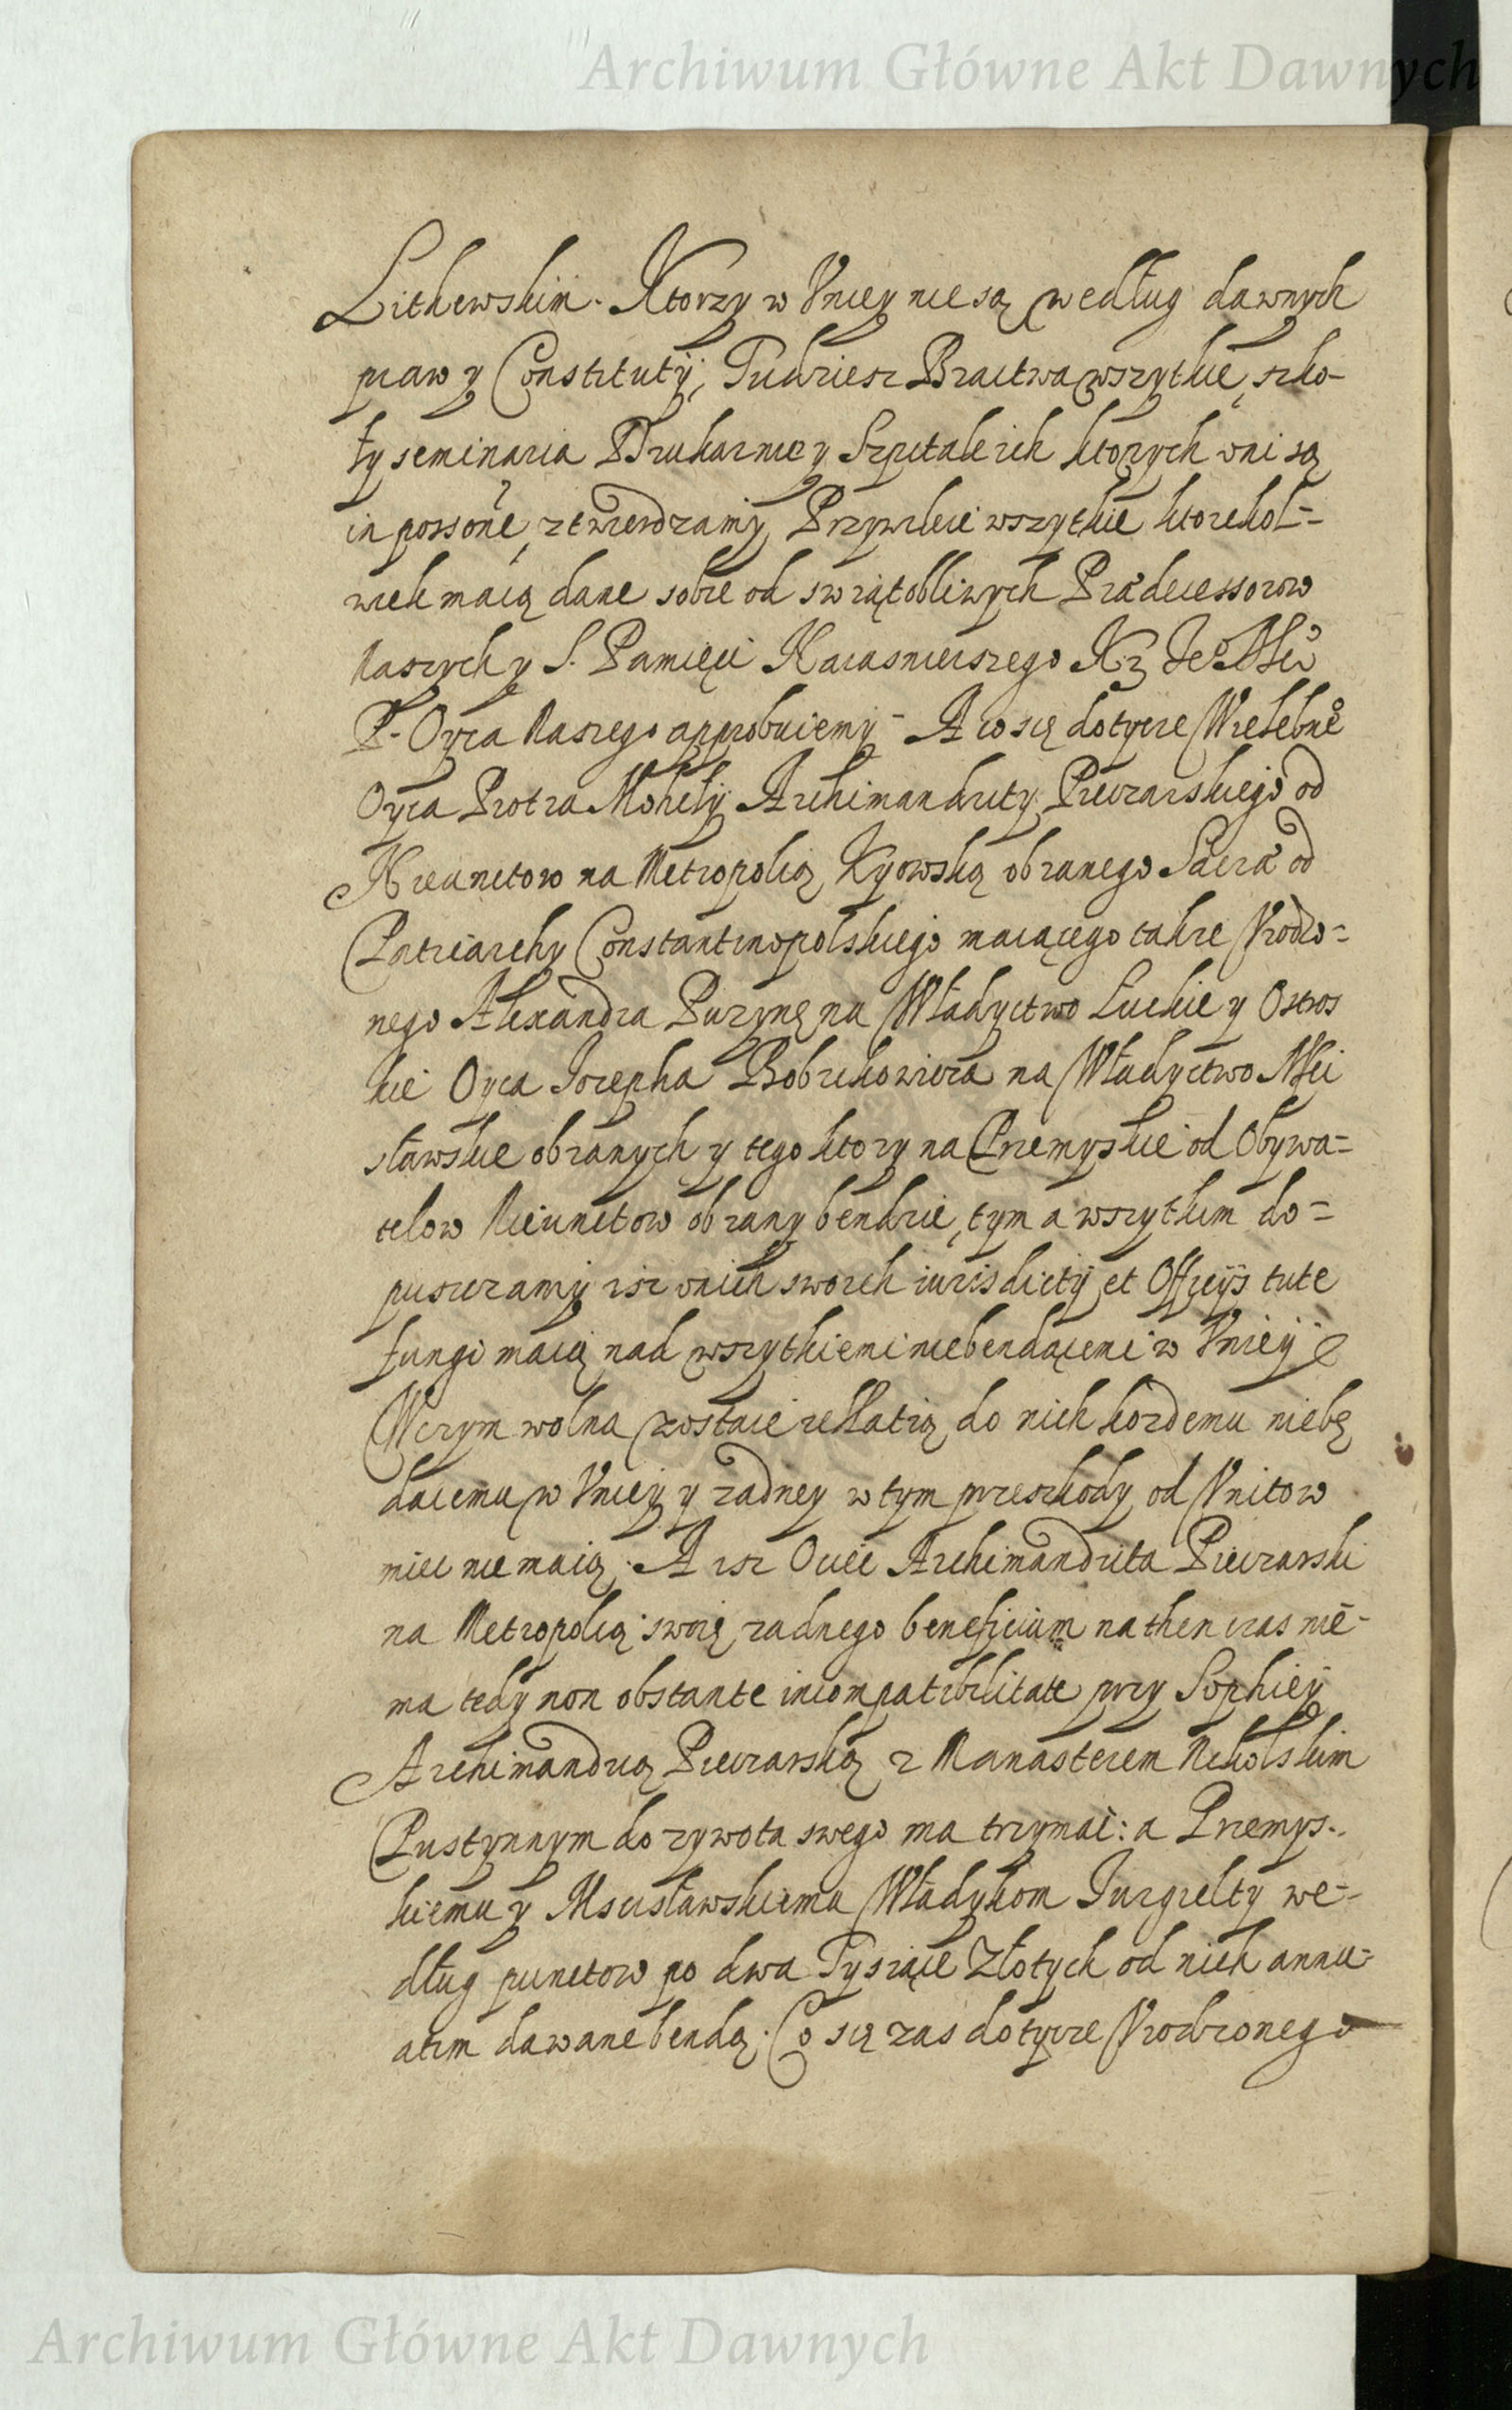 Archiwum Główne Akt Dawnych
Lithewskim. Ktorzy w Vniey nie są według dawnych
praw y Constitutÿ, Tudziesz Bractwa wszytkie, szko-
ły seminaria Drukarnie y Szpitale ich ktorych oni są
in possone, ztwierdzamy Przywileie wszytkie ktorekol=
wiek maią dane sobie od swiątobliwych Prædecessorow
naszych y S. Pamięci Naiasnieiszego K^a Je^o Mści
P. Oyca Naszego approbuiemy A co się dotycze Wielebne^o
Oyca Piotra Mohiły Archimandrity Pieczarskiego od
Nieunitow na Metropolią Kyowską obranego Sacra od
Patriarchy Constantinopolskiego maiącego takze Vrodzo=
nego Alexandra Puzynę na Władyctwo Łuckie y Ostros
kie Oyca Iozepha Bobrikowicza na Władyctwo Mści
sławskie obranych y tego ktory na Przemyskie od Obywa=
telow Nieunitow obrany bendzie, tym a wszytkim do=
puszczamy isz oni ich swoich iurisdictÿ et Officÿs tute
fungi maią nad wszytkiemi niebendącemi w Vnieÿ
W czym wolna zostaie rellatią do nich kozdemu niebę
dacemu w Vniey y zadney w tym przeszkody od Vnitow
miec nie maią. A isz Ociec Archimandrita Pieczarski
na Metropolią swoię zadnego beneficium na then czas nie-
ma tedy non obstante incompatibilitate przy Sophieÿ
Archimandrią Pieczarską z Manasterem Nikolskim
Pustynnym do zywota swego ma trzymac: a Przemys-
kiemu y Mscisławskiemu Władykom Iurgielty we=
dług punctow po dwa Tysiące Złotych od nich annu=
atim dawane bendą. Co się zas dotycze Vrodzonego
Archiwum Główne Akt Dawnych